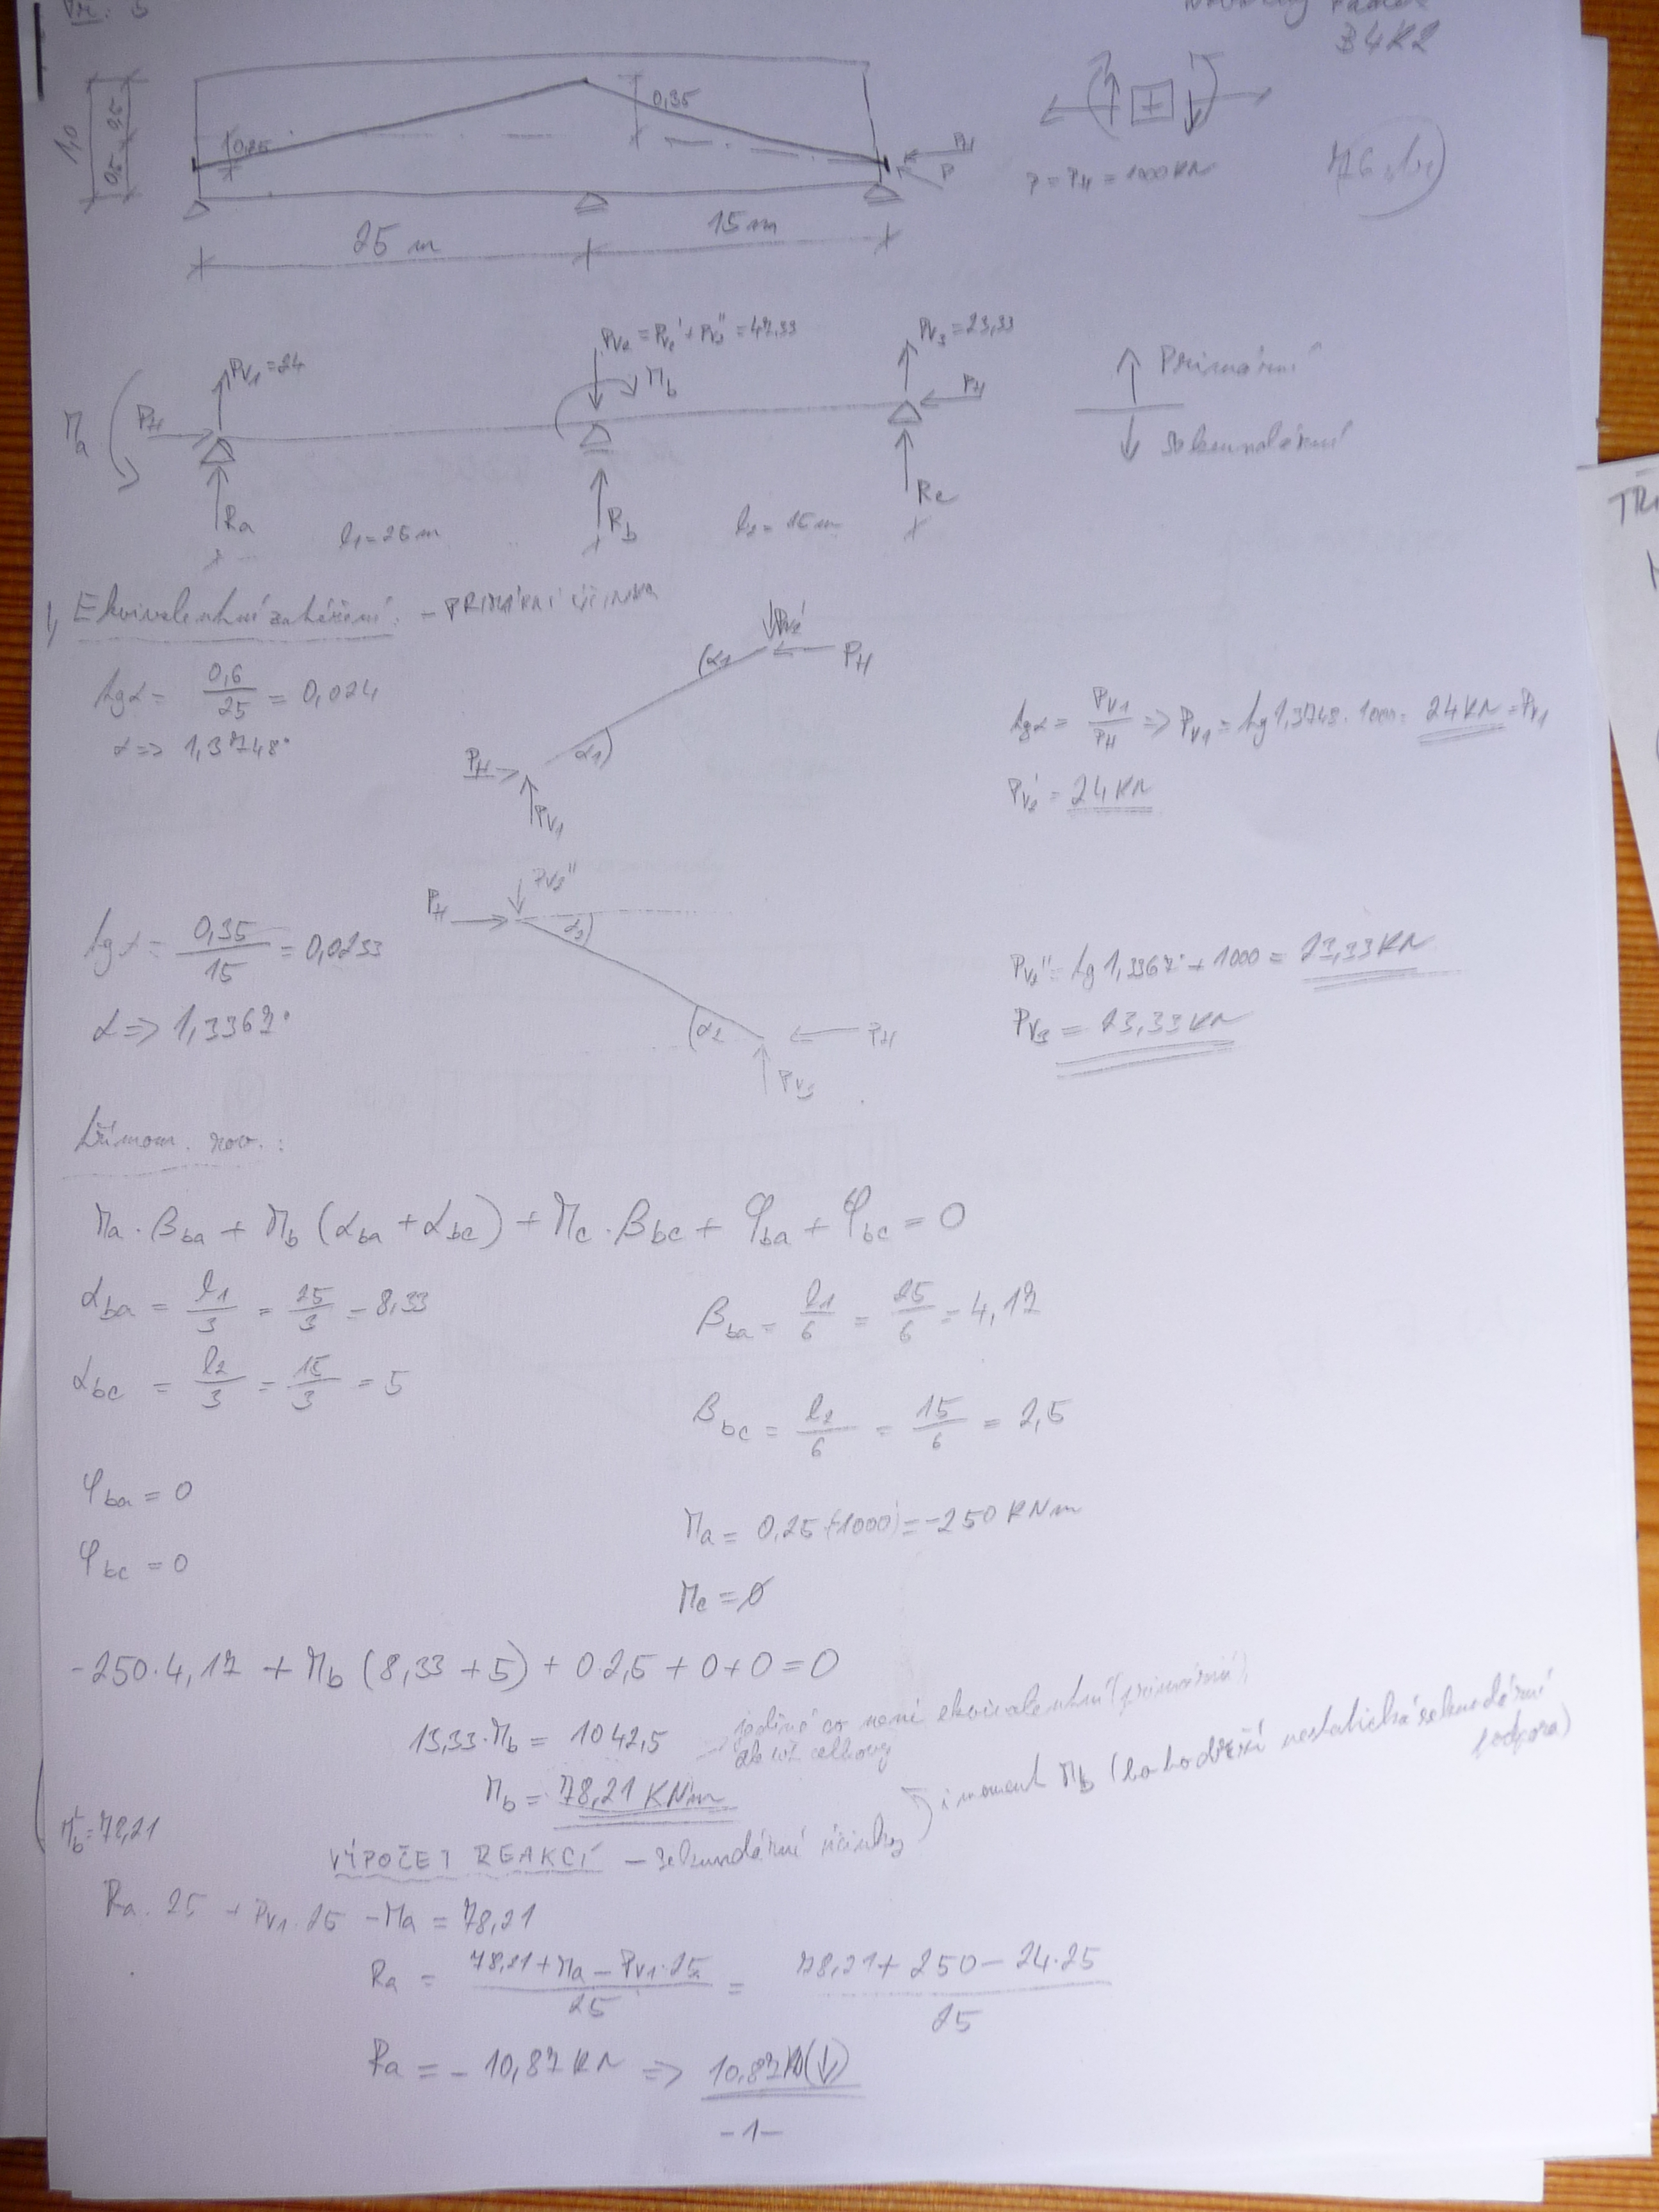 Př. 5
34K2
1,0
0,5 0,5
0,25
0,35
PH
P
P = PH = 1000 KN
25 m
15 m
PV1 = 24
PV2 = PV2' + PV2'' = 47,33
PV3 = 23,33
Mb
Ma
PH
PH
Primární
sekundární
Ra
Rb
Rc
l1 = 25 m
l2 = 15 m
1, Ekvivalentní zatížení: - PRIMÁRNÍ ÚČINKY
tgα = 0,6/25 = 0,024
α => 1,3748°
PV2'
PH
α1
α1
PH
PV1
tgα = PV1/PH => PV1 = tg 1,3748 · 1000 = 24 KN = PV1
PV2' = 24 KN
tgα = 0,35/15 = 0,0233
α => 1,3367°
PH
PV2''
α2
α2
PH
PV3
PV2'' = tg 1,3367° · 1000 = 23,33 KN
PV3 = 23,33 KN
Třímom. rov.:
Ma · βba + Mb (αba + αbc) + Mc · βbc + φba + φbc = 0
αba = l1/3 = 25/3 = 8,33
βba = l1/6 = 25/6 = 4,17
αbc = l2/3 = 15/3 = 5
βbc = l2/6 = 15/6 = 2,5
φba = 0
φbc = 0
Ma = 0,25·(-1000) = -250 KNm
Mc = 0
-250·4,17 + Mb (8,33 + 5) + 0·2,5 + 0 + 0 = 0
13,33·Mb = 1042,5
jediné co není ekvivalentní (primární)
ale už celkový
Mb = 78,21 KNm
i moment Mb (to dodrží sekundární podpora)
Mb = 78,21
VÝPOČET REAKCÍ - sekundární účinky
Ra · 25 + PV1 · 25 - Ma = 78,21
Ra = (78,21 + Ma - PV1·25)/25 = (78,21 + 250 - 24·25)/25
Ra = -10,87 KN => 10,87 KN (↓)
-1-